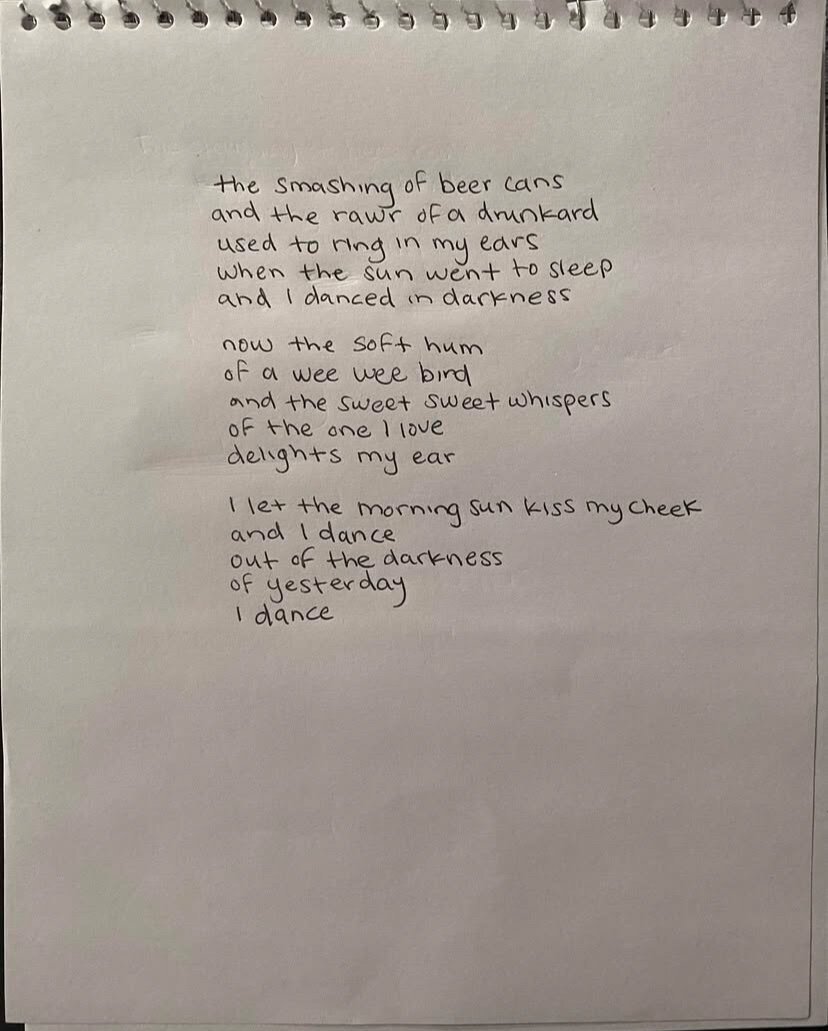 the smashing of beer cans
and the rawr of a drunkard
used to ring in my ears
when the sun went to sleep
and I danced in darkness
now the soft hum
of a wee wee bird
and the sweet sweet whispers
of the one I love
delights my ear
I let the morning sun kiss my cheek
and I dance
out of the darkness
of yesterday
I dance